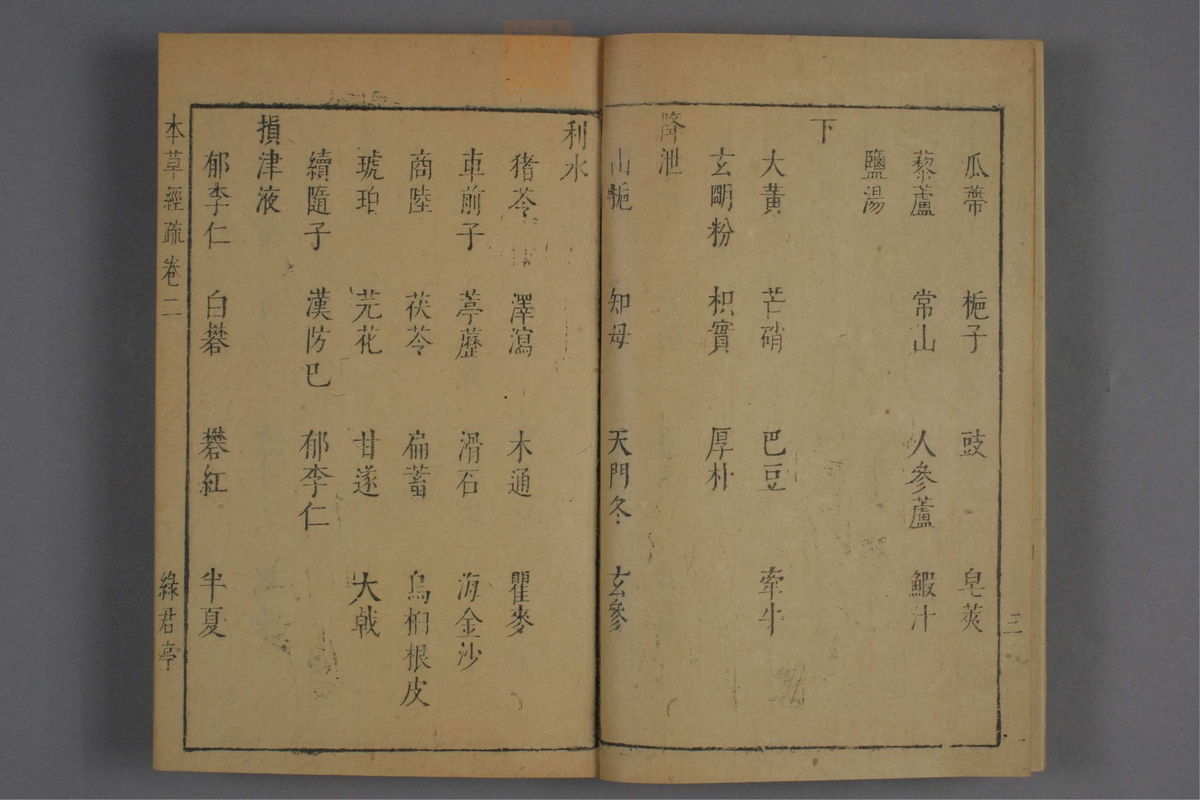 三
瓜蔕 梔子 豉 皂莢
藜蘆 常山 人參蘆 鰕汁
鹽湯
下
大黃 芒硝 巴豆 牽牛
玄明粉 枳實 厚朴
降泄
山梔 知母 天門冬 玄參
利水
猪苓 澤瀉 木通 瞿麥
車前子 葶藶 滑石 海金沙
商陸 茯苓 扁蓄 烏桕根皮
琥珀 芫花 甘遂 大戟
續隨子 漢防巳 郁李仁
損津液
郁李仁 白礬 礬紅 半夏
本草經疏 卷二 綠君亭